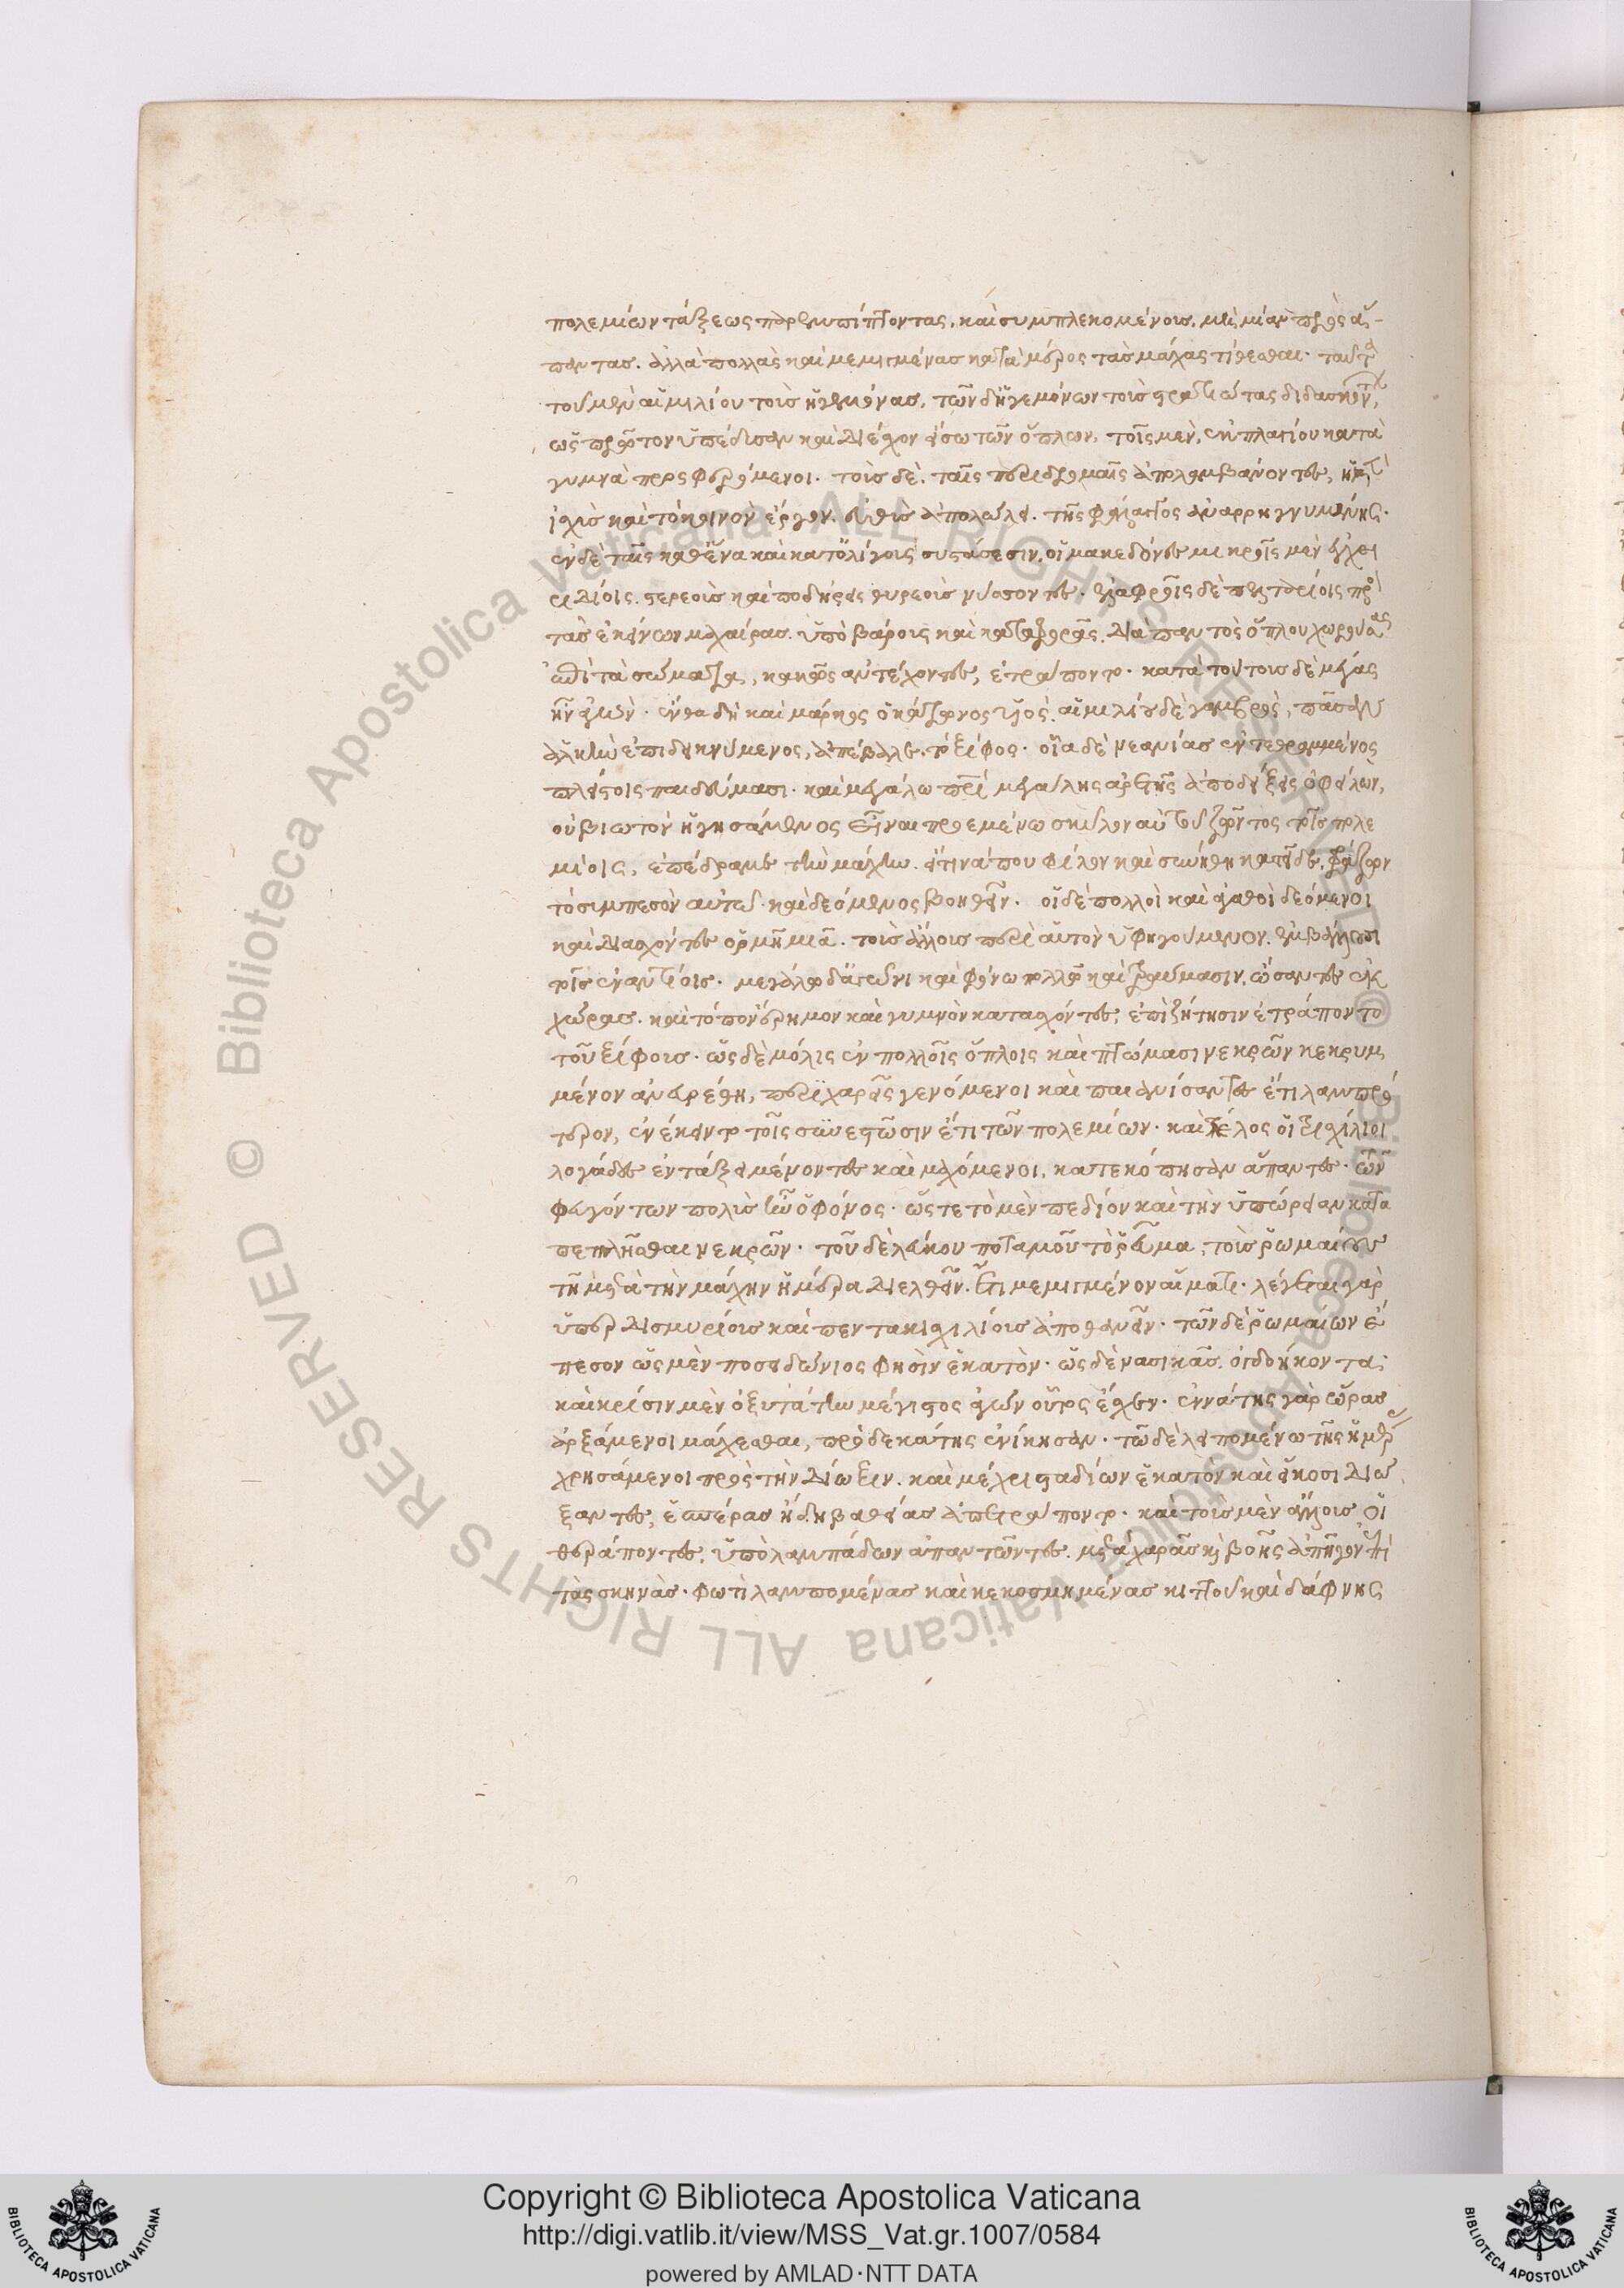 πολεμίων τάξεως παρεμπίπτοντας. καὶ συμπλεκομένους. μὴ μίαν πρὸς ἅ-
παντας. ἀλλὰ πολλὰς καὶ μεμιγμένας κατὰ μέρος τὰς μάχας τίθεσθαι. ταῦτα
τοῦ μὲν αἰμιλίου τοὺς ἡγεμόνας, τῶν δ' ἡγεμόνων τοὺς στρατιώτας διδασκόντων,
ὡς πρῶτον ὑπέδυσαν καὶ διέσχον εἴσω τῶν ὅπλων, τοῖς μὲν, ἐκ πλαγίου κατὰ
γυμνὰ προσφερόμενοι. τοὺς δὲ, ταῖς περιδρομαῖς ἀπολαμβάνοντες,
ἰσχὺς καὶ τὸ κοινὸν ἔργον, εὐθὺς ἀπολώλει. τῆς φάλαγγος ἀναρρηγνυμένης.
ἐν δὲ ταῖς καθ' ἕνα καὶ κατ' ὀλίγους συστάσεσιν, οἱ μακεδόνες μικροῖς μὲν ἐγχει
ριδίοις στερεοὺς καὶ ποδήρεις θυρεοὺς νύσσοντες. ἐλαφροῖς δὲ πελταρίοις πρὸς
τὰς ἐκείνων μαχαίρας. ὑπὸ βάρους καὶ καταφορᾶς. διὰ παντὸς ὅπλου χωρούσας
ἐπὶ τὰ σώματα, κακῶς ἀντέχοντες, ἐτράποντο. κατὰ τούτους δὲ μέγας
ἦν ἀγών. ἔνθα δὴ καὶ μάρκος ὁ κάτωνος υἱὸς, αἰμιλίου δὲ γαμβρὸς, πᾶσαν
ἀλκὴν ἐπιδεικνύμενος, ἀπέβαλε τὸ ξίφος. οἷα δὲ νεανίας ἐντεθραμμένος
πλείστοις παιδεύμασι. καὶ μεγάλω πατρὶ μεγάλης ἀρετῆς ἀποδείξεις ὀφείλων,
οὐ βιωτὸν ἡγησάμενος εἶναι προεμένω σκῦλον αὐτοῦ ζῶντος τοῖς πολε
μίοις, ἐπέδραμε τὴν μάχην. εἴ τινά που φίλον καὶ συνήθη κατεῖδε, φράζων
τὸ συμπεσὸν αὐτῶ. καὶ δεόμενος βοηθεῖν. οἱ δὲ πολλοὶ καὶ ἀγαθοὶ δεόμενοι
καὶ διασχόντες ὁρμῆ μιᾶ. τοὺς ἄλλους περὶ αὐτὸν ὑφηγούμενον. ἐμβάλλουσι
τοῖς ἐναντίοις. μεγάλω δ' ἀγῶνι καὶ φόνω πολλῶ καὶ τραύμασιν, ὤσαντες ἐκ
χώρας. καὶ τόπον ἔρημον καὶ γυμνὸν κατασχόντες, ἐπὶ ζήτησιν ἐτράποντο
τοῦ ξίφους. ὡς δὲ μόλις ἐν πολλοῖς ὅπλοις καὶ πτώμασι νεκρῶν κεκρυμ
μένον ἀνευρέθη, περιχαρεῖς γενόμενοι καὶ παιανίσαντες ἔτι λαμπρό
τερον, ἐνέκειντο τοῖς συνεστῶσιν ἔτι τῶν πολεμίων. καὶ τέλος οἱ τρισχίλιοι
λογάδες ἐν τάξει μένοντες καὶ μαχόμενοι, κατεκόπησαν ἅπαντες. τῶν
φευγόντων πολὺς ἦν ὁ φόνος. ὥστε τὸ μὲν πεδίον καὶ τὴν ὑπώρειαν κατα
πεπλῆσθαι νεκρῶν. τοῦ δὲ λεύκου ποταμοῦ τὸ ῥεῦμα, τοὺς ῥωμαίους
τῆ μετὰ τὴν μάχην ἡμέρα διελθεῖν. ἔτι μεμιγμένον αἵματι. λέγεται γὰρ
ὑπὲρ δισμυρίους καὶ πεντακισχιλίους ἀποθανεῖν. τῶν δὲ ῥωμαίων ἔ
πεσον ὡς μὲν ποσειδώνιος φησὶν ἑκατὸν. ὡς δὲ νασικᾶς. ὀγδοήκοντα.
καὶ κρίσιν μὲν ὀξυτάτην μέγιστος ἀγὼν οὗτος ἔσχεν. ἐννάτης γὰρ ὥρας
ἀρξάμενοι μάχεσθαι, πρὸ δεκάτης ἐνίκησαν. τῶ δὲ λειπομένω τῆς ἡμέρας
χρησάμενοι πρὸς τὴν δίωξιν. καὶ μέχρι σταδίων ἑκατὸν καὶ εἴκοσι διώ
ξαντες, ἑσπέρας ἤδη βαθείας ἀπετράποντο. καὶ τοὺς μὲν ἄλλους οἱ
θεράποντες. ὑπὸ λαμπάδων ἀπαντῶντες, μετὰ χαρᾶς καὶ βοῆς ἀπῆγον ἐπὶ
τὰς σκηνὰς. φωτὶ λαμπομένας καὶ κεκοσμημένας κιττοῦ καὶ δάφνης
Copyright © Biblioteca Apostolica Vaticana
http://digi.vatlib.it/view/MSS_Vat.gr.1007/0584
powered by AMLAD·NTT DATA
BIBLIOTECA APOSTOLICA VATICANA
BIBLIOTECA APOSTOLICA VATICANA
© Biblioteca Apostolica Vaticana ALL RIGHTS RESERVED
© Biblioteca Apostolica Vaticana ALL RIGHTS RESERVED